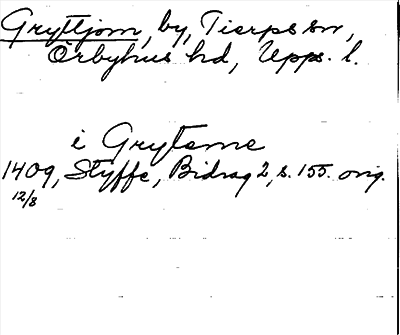 Gryttjom, by, Tierps sn,
Örbyhus hd, Upps. l.
i Gryteme
1409, Styffe, Bidrag 2, s. 155. orig.
12/8